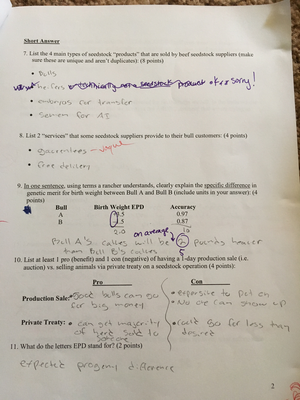 Short Answer
7. List the 4 main types of seedstock "products" that are sold by beef seedstock suppliers (make
sure these are unique and aren't duplicates): (8 points)
• Bulls
heifers ← technically not a seedstock product • sorry!
• embryos for transfer
• Semen for AI
8. List 2 "services" that some seedstock suppliers provide to their bull customers: (4 points)
• guarentees - vague
• free delivery
9. In one sentence, using terms a rancher understands, clearly explain the specific difference in
genetic merit for birth weight between Bull A and Bull B (include units in your answer): (4
points)
Bull Birth Weight EPD Accuracy
A 0.97
B 0.87
2.0 10
on average
Bull A's calves will be 2 pounds
than Bull B's calves
10. List at least 1 pro (benefit) and 1 con (negative) of having a 1-day production sale (i.e.
auction) vs. selling animals via private treaty on a seedstock operation (4 points):
Pro Con
Production Sale: • Good bulls can go • expensive to put on
for big money • No one can show up
Private Treaty: • can get majority • could go for less than
of herd sold to desired
someone
11. What do the letters EPD stand for? (2 points)
expected progeny difference
2